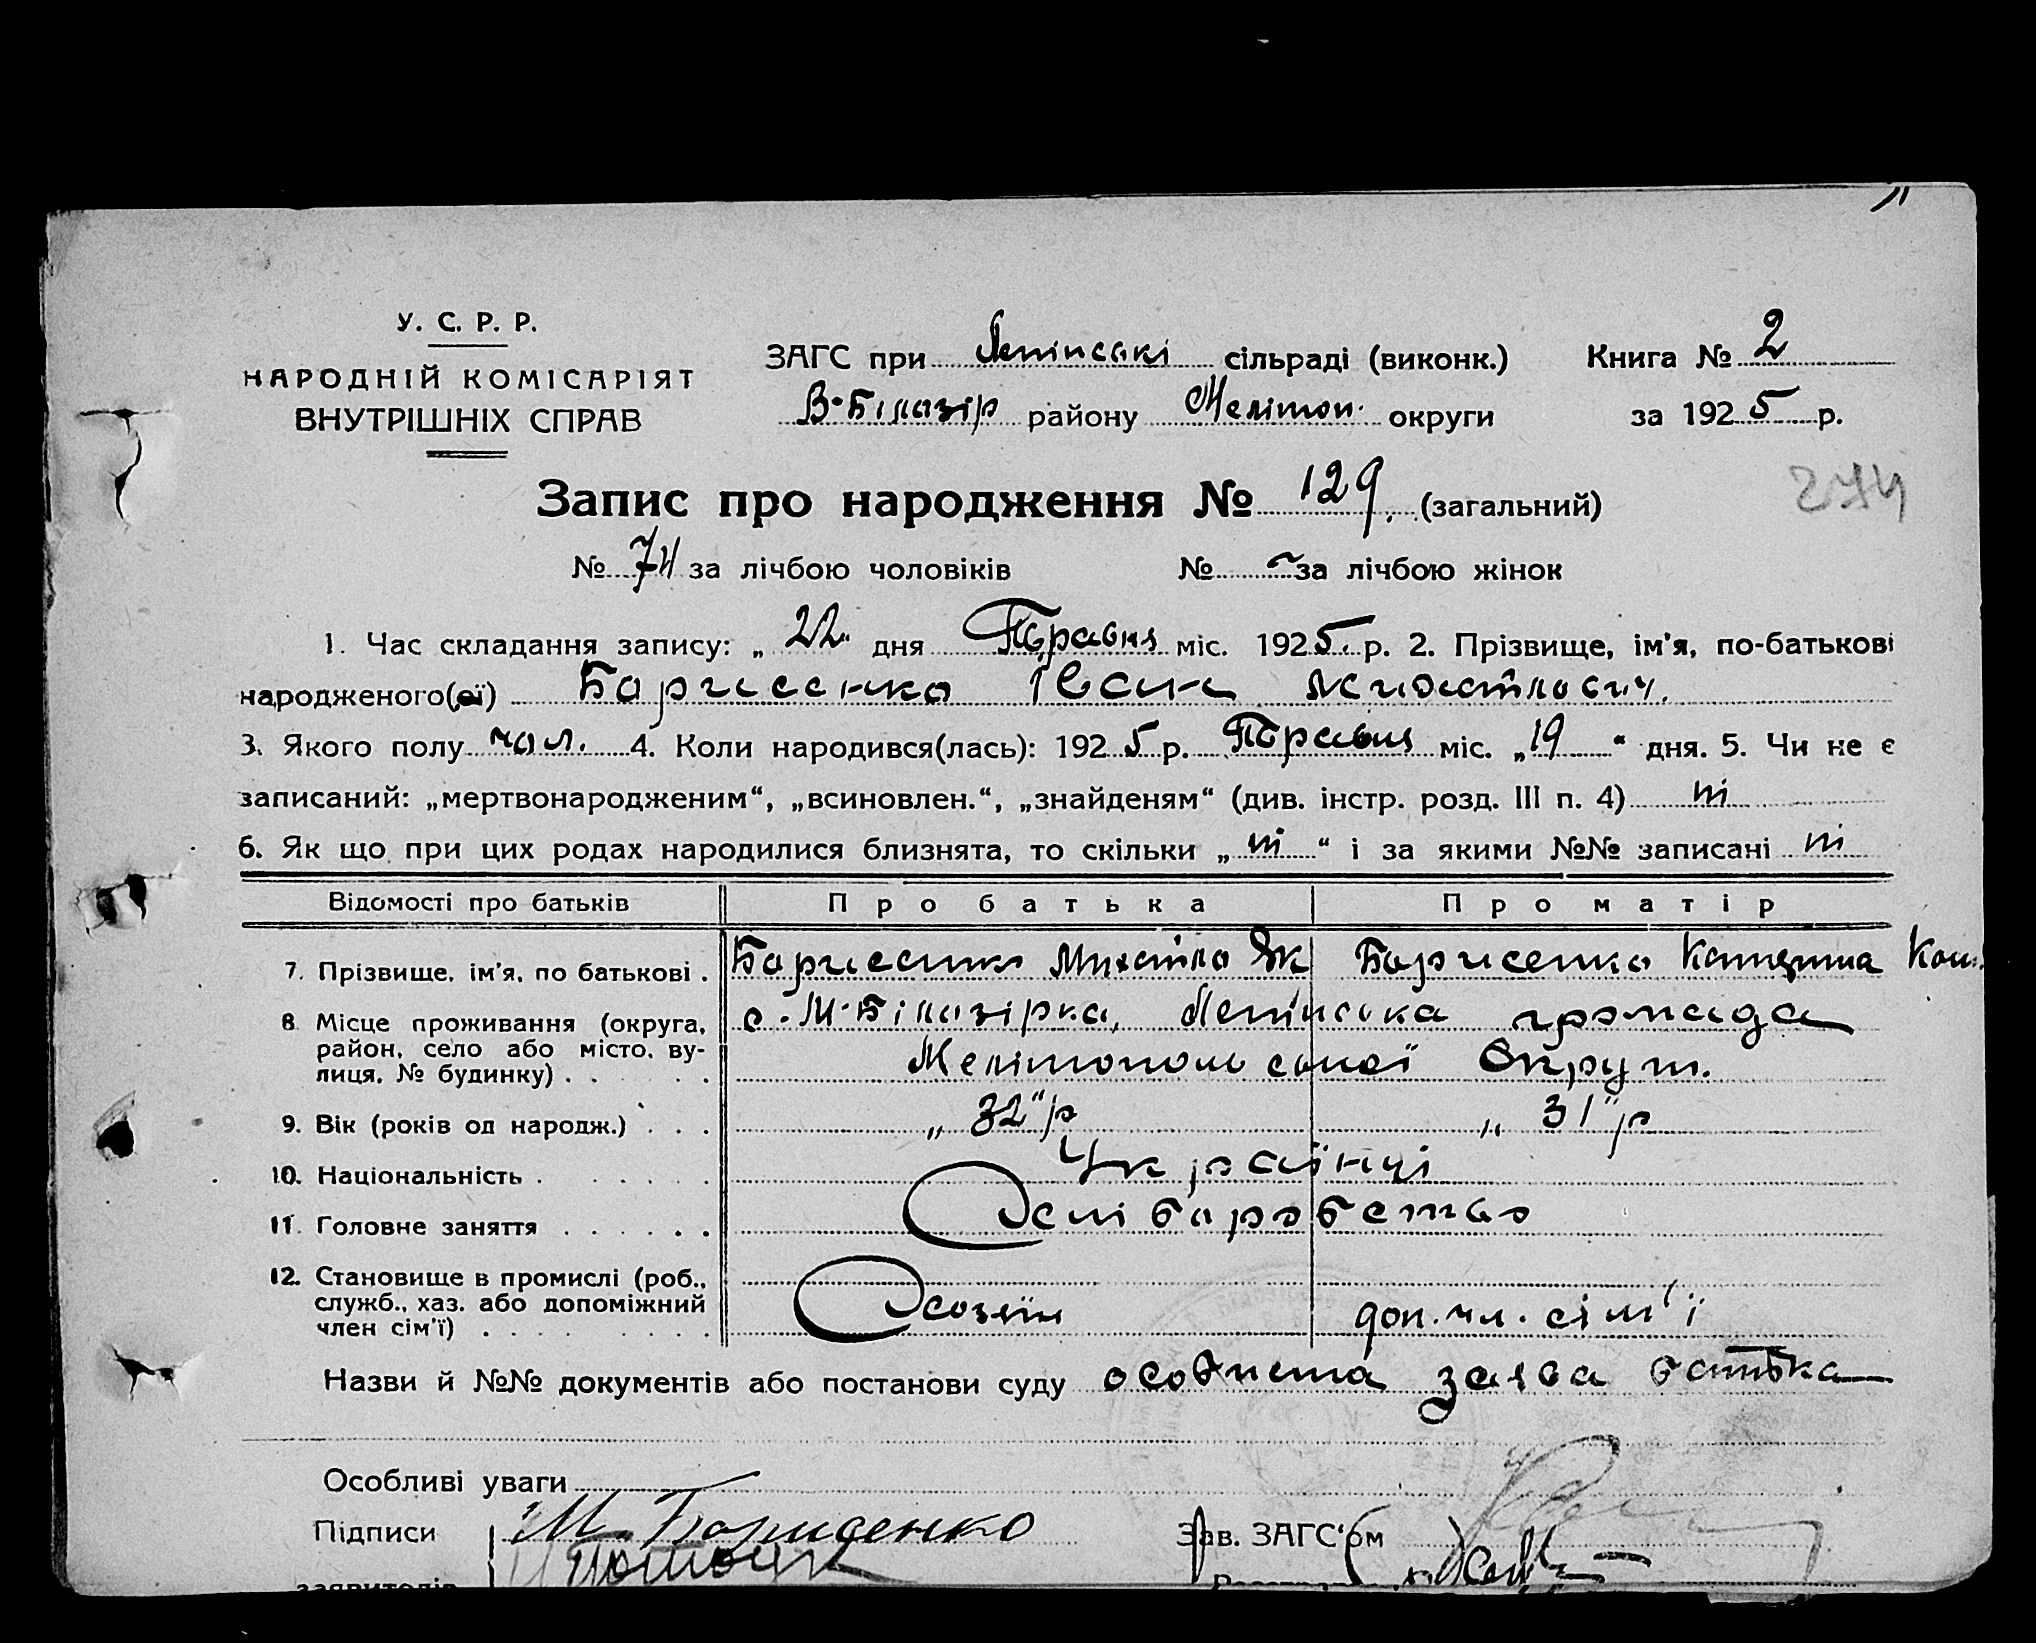 У. С. Р. Р.
НАРОДНІЙ КОМІСАРІЯТ
ВНУТРІШНІХ СПРАВ
ЗАГС при Ленінські сільраді (виконк.) Книга № 2
В-Білозір району Мелітоп. округи за 1925 р.
274
Запис про народження № 129. (загальний)
№ 74 за лічбою чоловіків № - за лічбою жінок
1. Час складання запису: „ 22 " дня Травня міс. 1925. р. 2. Прізвище, ім'я, по-батькові
народженого(ої) Борисенко Іван Михайлович.
3. Якого полу чол. 4. Коли народився(лась): 1925 р. Травня міс. „19 “ дня. 5. Чи не є
записаний: „мертвонародженим“, „всиновлен.“, „знайденям“ (див. інстр. розд. III п. 4) ні
6. Як що при цих родах народилися близнята, то скільки „ ні “ і за якими №№ записані ні
Відомості про батьків Про батька Про матір
7. Прізвище, ім'я, по батькові . Борисенко Михайло Як Борисенко Катерина
8. Місце проживання (округа, район, село або місто, вулиця, № будинку) . с. М-Білозірка, Ленінська громада
Мелітопольської Округи.
9. Вік (років од народж.) . . . „ 32 "р „ 31 "р
10. Національність . Українці
11. Головне заняття . Хліборобство
12. Становище в промислі (роб., служб., хаз. або допоміжний член сім'ї) . Хозяїн доп. чл. сім'ї
Назви й №№ документів або постанови суду особиста заява батька
Особливі уваги
Підписи М. Борисенко Зав. ЗАГС'ом
заявителів